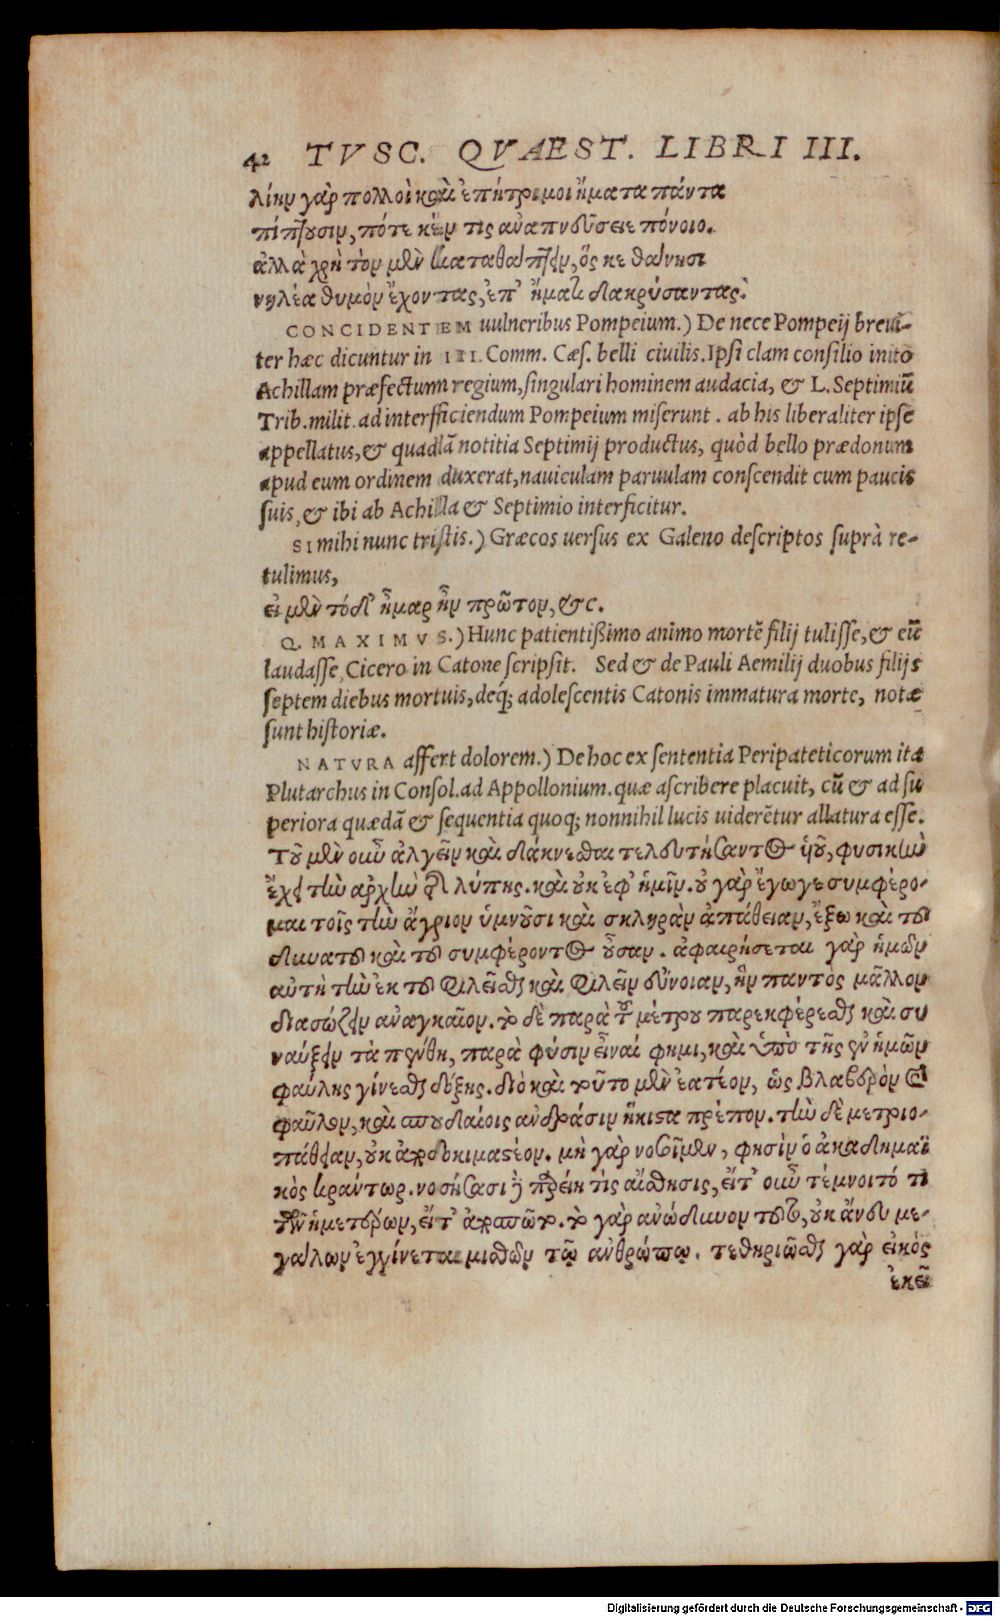 42 TVSC. QVAEST. LIBRI III.
λίην γὰρ πολλοὶ καὶ ἐπήτριμοι ἤματα πάντα
πίπτουσιν, πότε κέν τις ἀναπνεύσειε πόνοιο.
ἀλλὰ χρὴ τὸν μὲν καταθάπτειν, ὅς κε θάνῃσι
νηλέα θυμὸν ἔχοντας, ἐπ' ἤματι δακρύσαντας.
CONCIDENTEM uulneribus Pompeium.) De nece Pompeij breui-
ter hæc dicuntur in III. Comm. Cæs. belli ciuilis. Ipsi clam consilio inito
Achillam præfectum regium, singulari hominem audacia, & L. Septimiũ
Trib. milit. ad interfficiendum Pompeium miserunt. ab his liberaliter ipse
appellatus, & quadã notitia Septimij productus, quòd bello prædonum
apud eum ordinem duxerat, nauiculam paruulam conscendit cum paucis
suis, & ibi ab Achilla & Septimio interficitur.
SI mihi nunc tristis.) Græcos uersus ex Galeno descriptos suprà re-
tulimus,
εἰ μὲν τόδ' ἦμαρ ἦν πρῶτον, &c.
Q. MAXIMVS.) Hunc patientißimo animo mortẽ filij tulisse, & eũ
laudasse, Cicero in Catone scripsit. Sed & de Pauli Aemilij duobus filijs
septem diebus mortuis, deq́; adolescentis Catonis immatura morte, notæ
sunt historiæ.
NATVRA affert dolorem.) De hoc ex sententia Peripateticorum ita
Plutarchus in Consol. ad Appollonium. quæ ascribere placuit, cũ & ad su
periora quædã & sequentia quoq; nonnihil lucis uiderẽtur allatura esse.
Τὸ μὲν οὖν ἀλγεῖν καὶ δάκνεσθαι τελευτήσαντος ἱοῦ, φυσικὴν
ἔχει τὴν ἀρχὴν τῆς λύπης. καὶ οὐκ ἐφ' ἡμῖν. οὐ γὰρ ἔγωγε συμφέρο-
μαι τοῖς τὴν ἄγριον ὑμνοῦσι καὶ σκληρὰν ἀπάθειαν, ἔξω καὶ τοῦ
δυνατοῦ καὶ τοῦ συμφέροντος οὖσαν. ἀφαιρήσεται γὰρ ἡμῶν
αὐτὴ τὴν ἐκ τοῦ φιλεῖσθαι καὶ φιλεῖν εὔνοιαν, ἣν παντὸς μᾶλλον
διασώζειν ἀναγκαῖον. τὸ δὲ παρὰ τὸ μέτρου παρεκφέρεσθαι καὶ συ
ναύξειν τὰ πένθη, παρὰ φύσιν εἶναί φημι, καὶ ὑπὸ τῆς ἐν ἡμῶν
φαύλης γίνεσθαι δόξης. διὸ καὶ τοῦτο μὲν ἐατέον, ὡς βλαβερὸν καὶ
φαῦλον, καὶ σπουδαίοις ἀνδράσιν ἥκιστα πρέπον. τὴν δὲ μετριο-
πάθειαν, οὐκ ἀποδοκιμαστέον. μὴ γὰρ νοσοῖμεν, φησὶν ὁ ἀκαδημαϊ
κὸς κράντωρ. νοσήσασι δὲ παρείη τὶς αἴσθησις, εἴτ' οὖν τέμνοιτό τι
τῶν ἡμετέρων, εἴτ' ἀποσπῷτο. τὸ γὰρ ἀνώδυνον τοῦτο, οὐκ ἄνευ με-
γάλων ἐγγίνεται μισθῶν τῷ ἀνθρώπῳ. τεθηριῶσθαι γὰρ εἰκὸς
ἐκεῖ
Digitalisierung gefördert durch die Deutsche Forschungsgemeinschaft - DFG